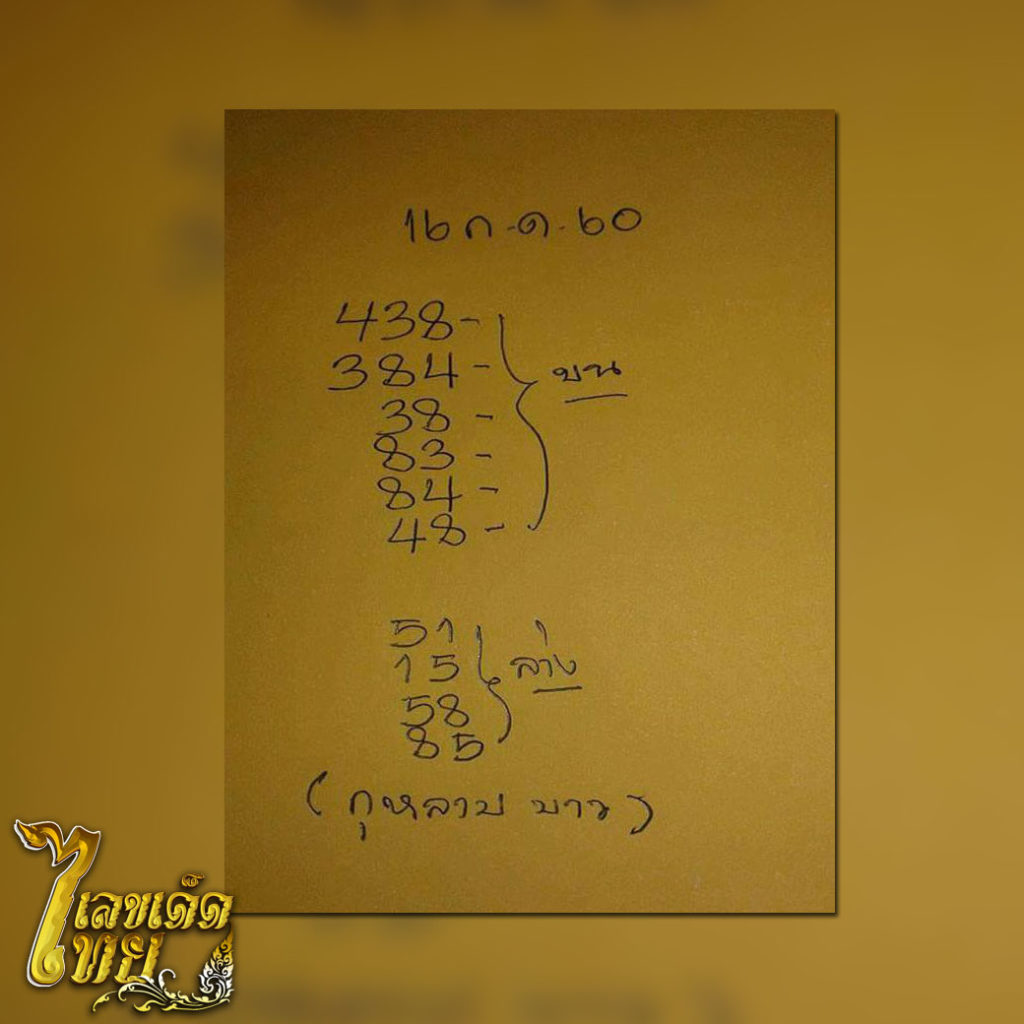 16 ก.ค. 60
438-
384 -
38 -
83 -
84 -
48 -
บน
51
15
58
85
ล่าง
(กุหลาบ ขาว)
เลขเด็ด
ไทย